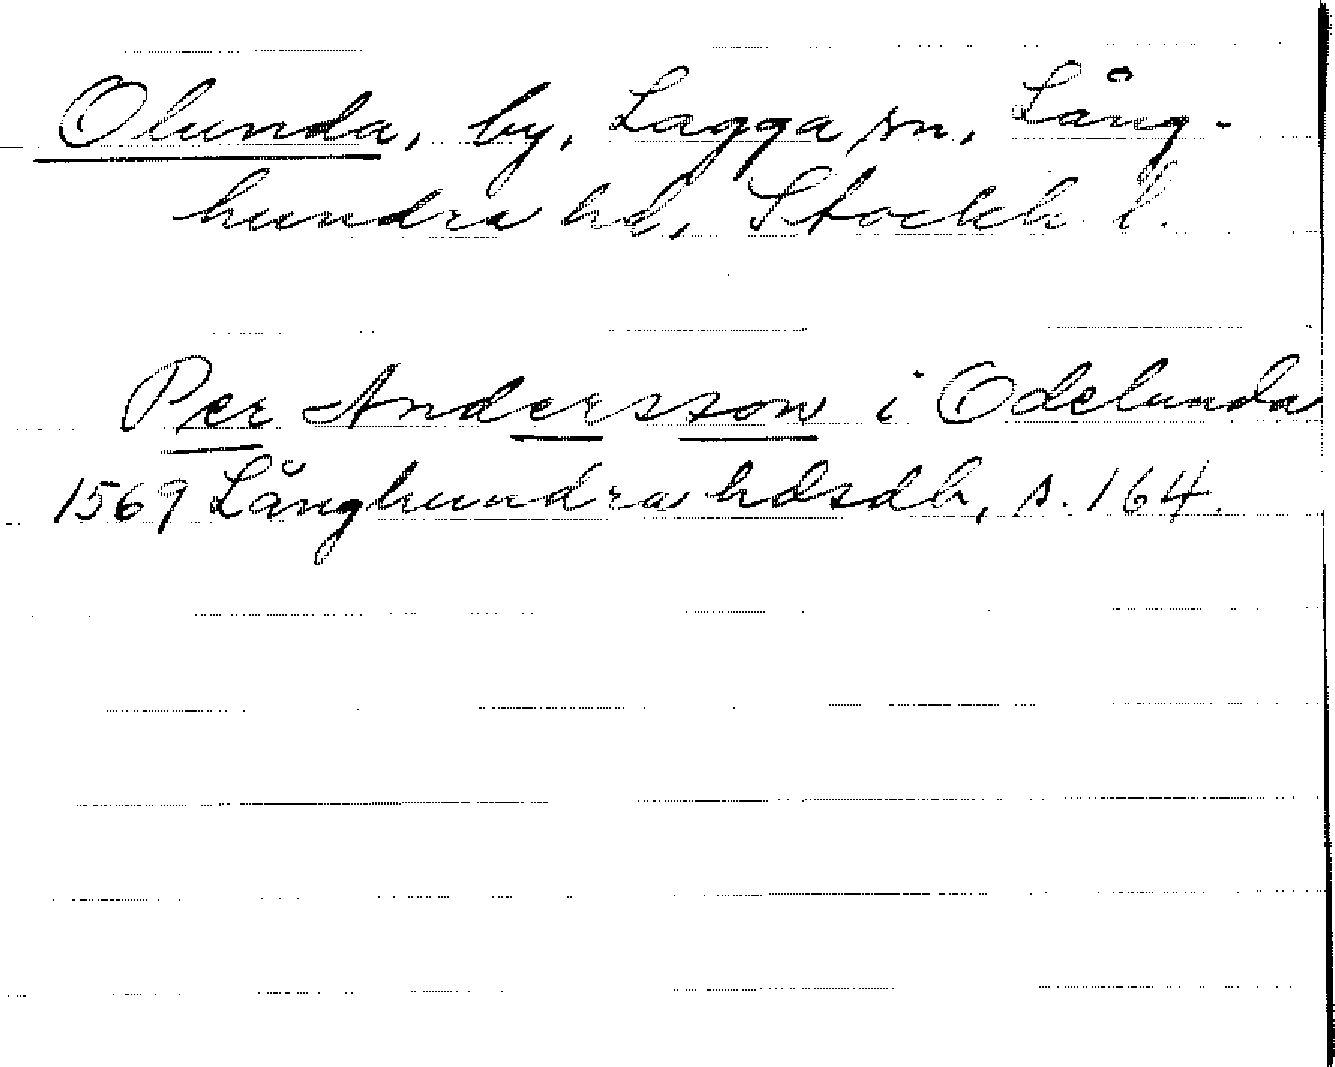 Olunda, by, Lagga sn, Lång-
hundra hd, Stockh. l.
Per Andersson i Odelunda
1569 Långhundra hdsdb, s. 164.